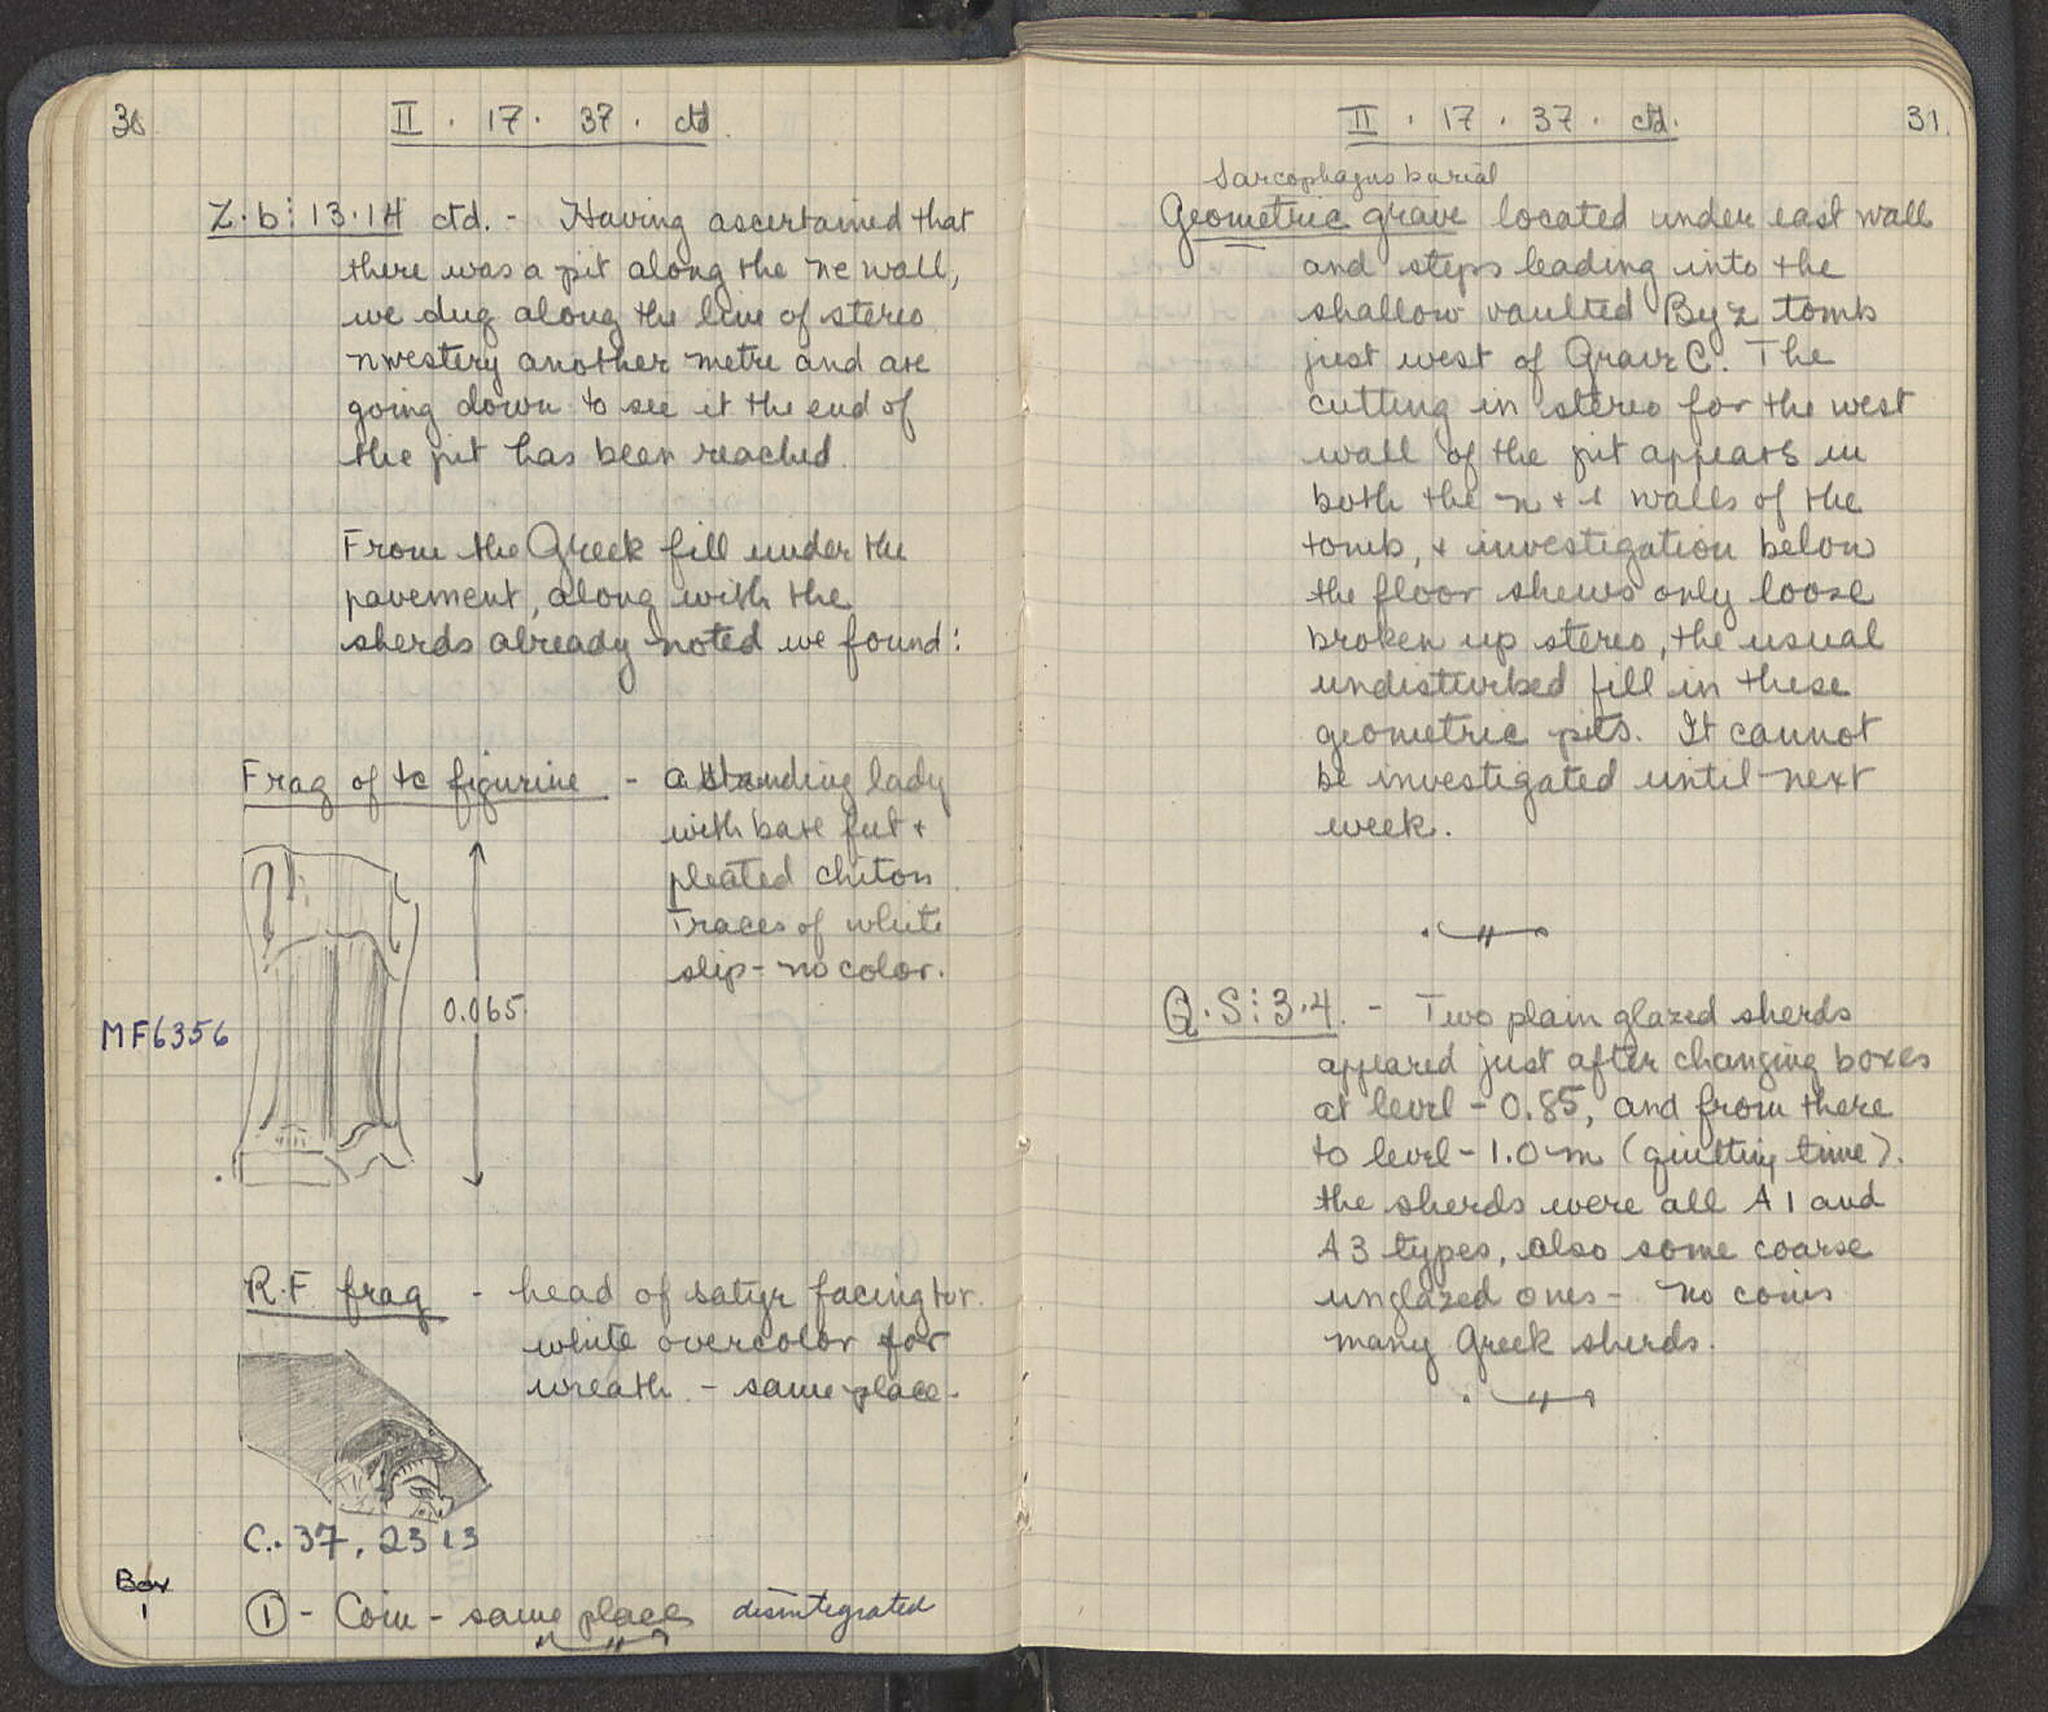 30
II . 17 . 37 . ctd.
Z.b: 13.14 ctd. - Having ascertained that
there was a pit along the ne wall,
we dug along the line of stereo
nwestery another metre and are
going down to see if the end of
the pit has been reached.
From the Greek fill under the
pavement, along with the
sherds already noted we found:
Frag of tc figurine - a standing lady
with bare feet +
pleated chiton.
Traces of white
slip - no color.
0.065
MF6356
R.F frag - head of satyr facing to r.
white overcolor for
wreath - same place.
C. 37. 2313
Box
1
① - Coin - same place disintegrated
II . 17 . 37 . ctd.
31.
Sarcophagus burial
Geometric grave located under east wall
and steps leading into the
shallow vaulted Byz tomb
just west of Grave C. The
cutting in stereo for the west
wall of the pit appears in
both the n + s walls of the
tomb, + investigation below
the floor shews only loose
broken up stereo, the usual
undisturbed fill in these
geometric pits. It cannot
be investigated until next
week.
Q.S: 3.4. - Two plain glazed sherds
appeared just after changing boxes
at level - 0.85, and from there
to level - 1.0 m (quitting time).
the sherds were all A1 and
A3 types, also some coarse
unglazed ones - no coins
many Greek sherds.